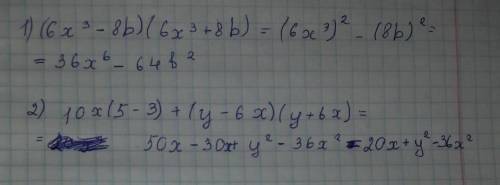 1) (6x³ - 8b)(6x³ + 8b) = (6x³)² - (8b)² =
= 36x⁶ - 64b²
2) 10x(5 - 3) + (y - 6x)(y + 6x) =
= 50x - 30x + y² - 36x² = 20x + y² - 36x²